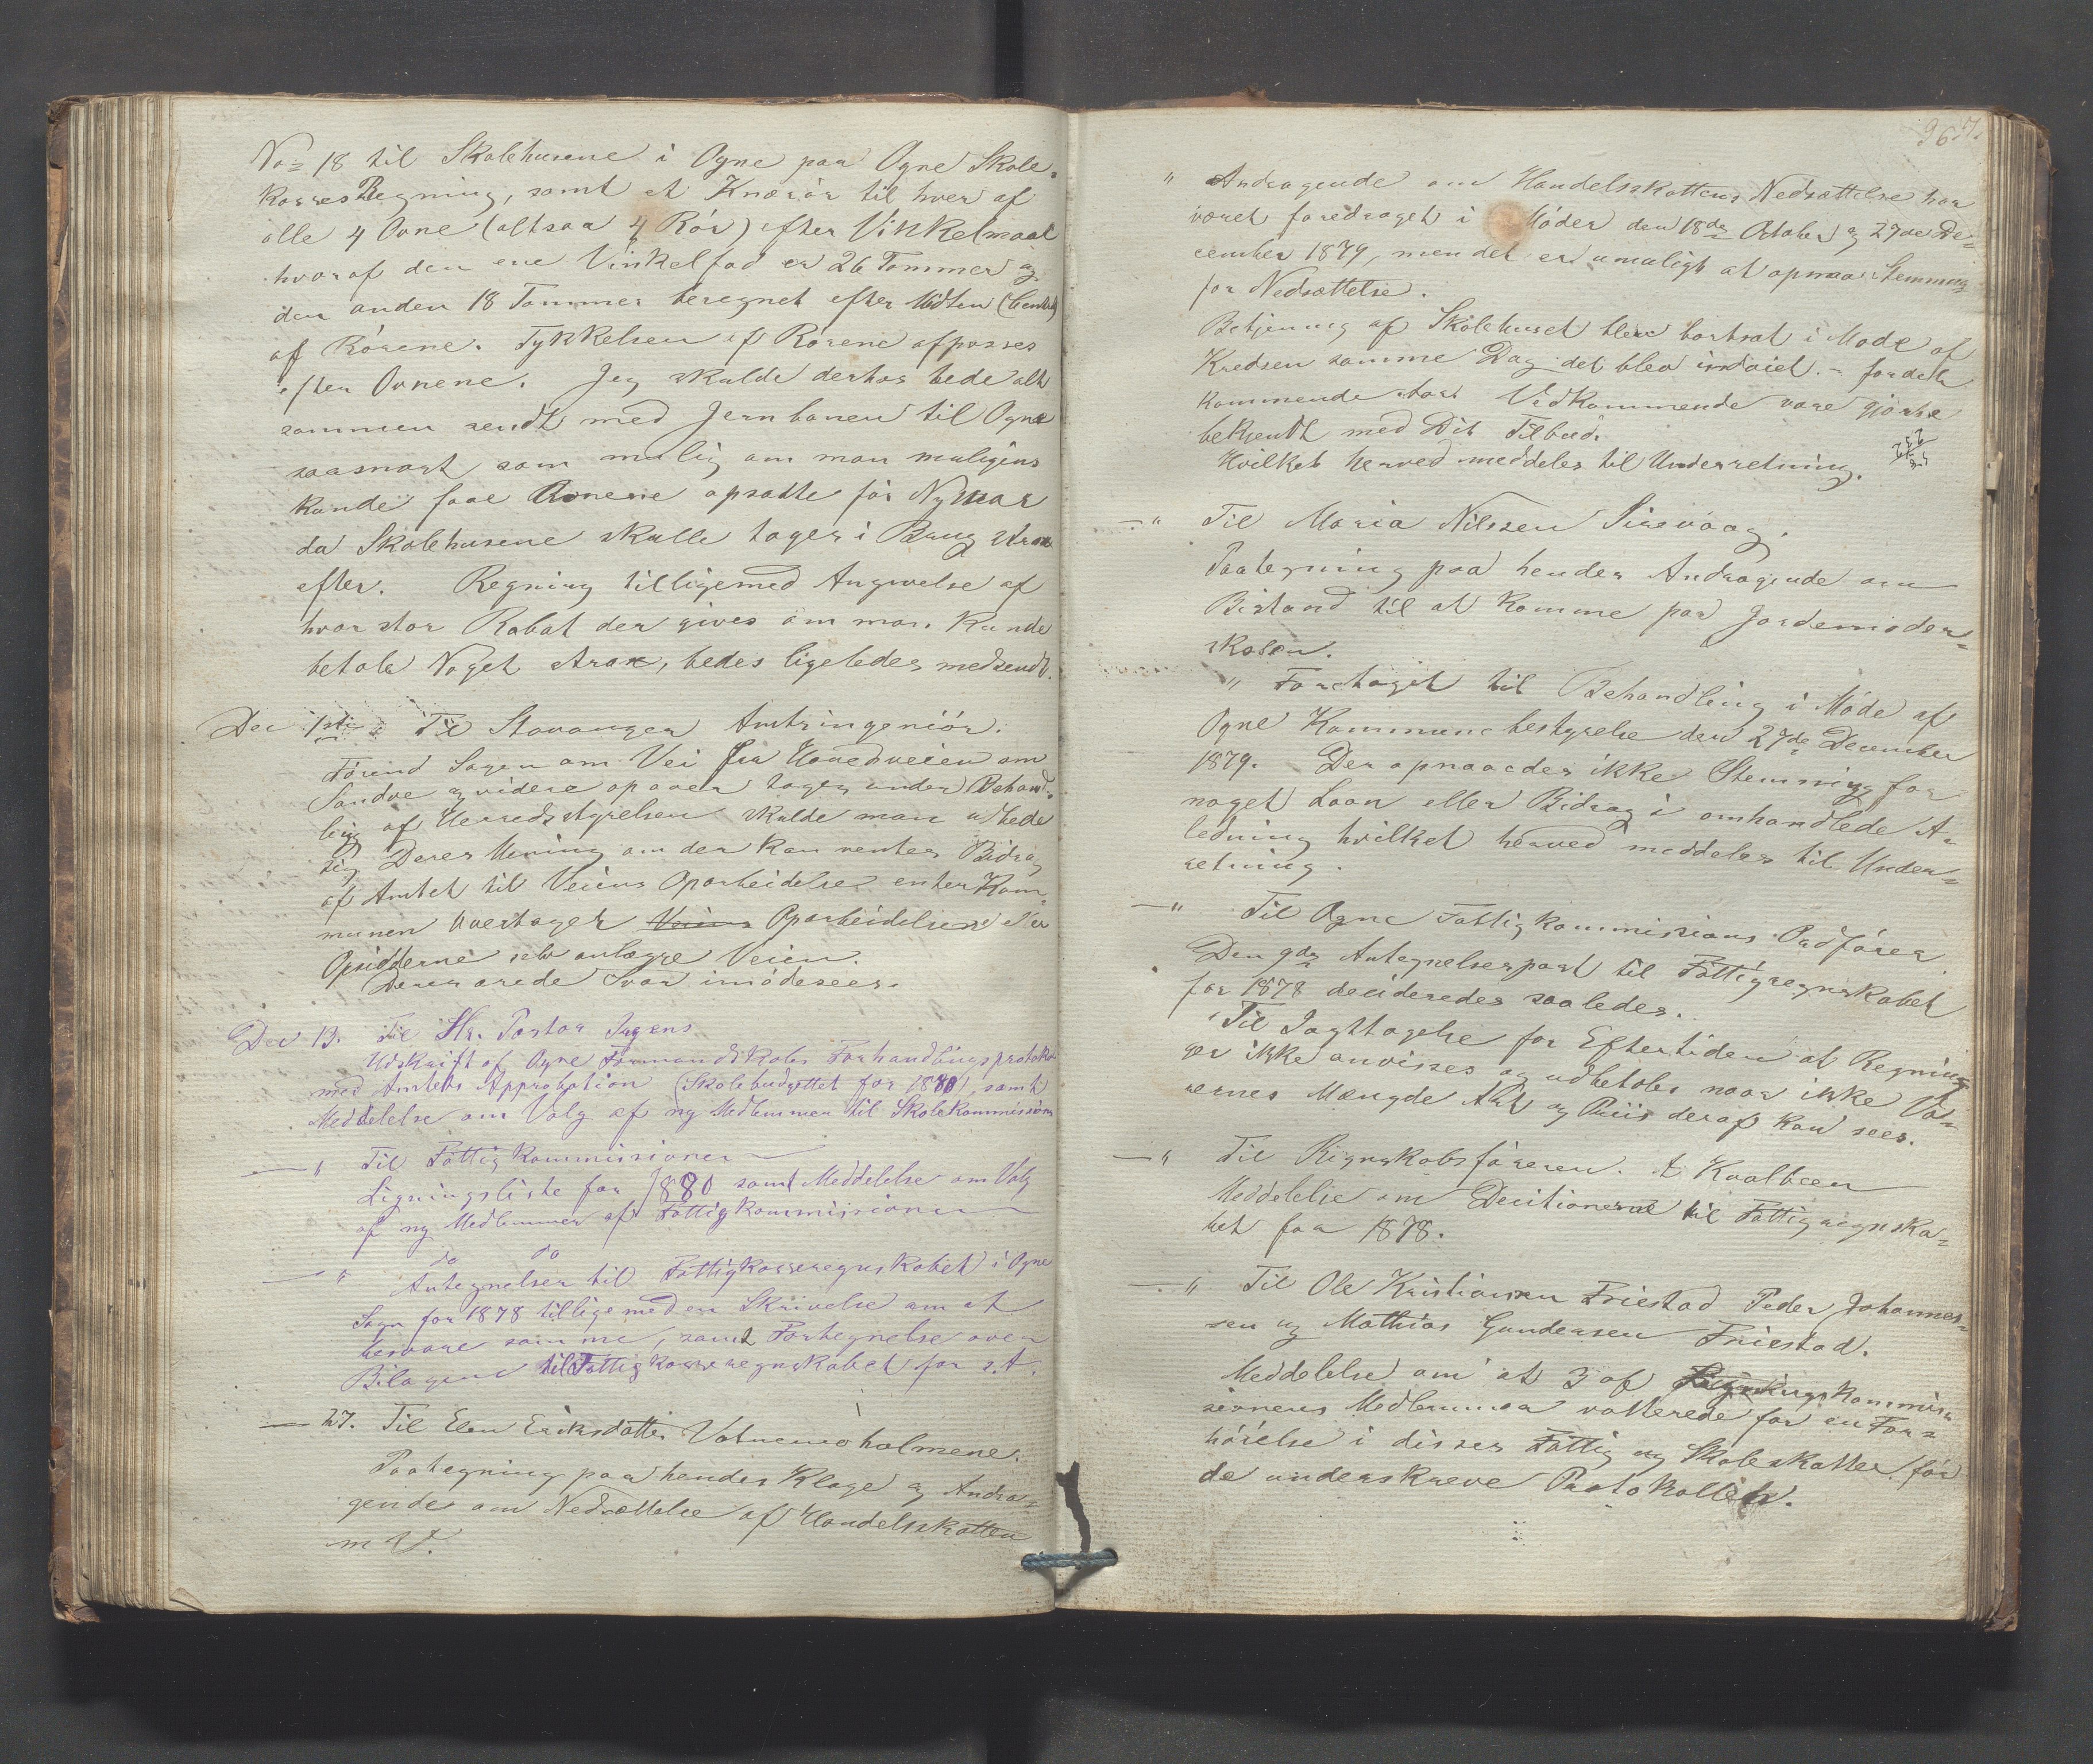 No 18 til Skolehusene i Ogne paa Ogne Skole-
kasses Regning, samt et Knærör til hver af
alle 4 Ovne (altsaa 4 Rör) efter Vinkelmaal
hvoraf den ene Vinkelfod er 26 Tommer og
den anden 18 Tommer beregnet efter Midten
af Rörene. Tykkelsen af Rörene afpasses
efter Ovnene. Jeg skulde derhos bede alt
sammen sendt med Jernbanen til Ogne
saasnart som mulig om man muligens
kunde faae Ovnene opsatte för Nytaar
da Skolehusene skulle tages i Brug strax
efter. Regning tilligemed Angivelse af
hvor stor Rabat der gives om man kunde
betale Noget strax, bedes ligeledes medsendt.
Dec 1ste Til Stavanger Amtsingeniör.
Förend Sagen om Vei fra Hovedveien om
Sandve og videre opover tages under Behand-
ling af Herredsstyrelsen skulde man udbede
sig Deres Mening om der kan ventes Bidrag
af Amtet til Veiens Oparbeidelse enten Kom-
munen overtager Veiens Oparbeidelsen eller
Opsidderne selv anlægge Veien.
Deres ærede Svar imödesees.
Dec 13. Til Hr. Pastor
Udskrift af Ogne Formandskabs Forhandlingsprotokol
med Amtets Approbation (Skolebudgettet for 1880), samt
Meddelelse om Valg af ny Medlemmer til Skolekommissionen
— " Til Fattigkommissionen
Ligningsliste for 1880 samt Meddelelse om Valg
af ny Medlemmer af Fattigkommissionen
— " do do
Antegnelser til Fattigkasseregnskabet i Ogne
Sogn for 1878 tilligemed en Skrivelse om at
besvare samme, samt Fortegnelse over
Bilagene til Fattigkasseregnskabet for s. A.
— 27. Til Elen Eriksdatter Vatnemoholmene.
Paategning paa hendes Klage og Andra-
gende om Nedsættelse af Handelsskatten
m. V.
96
" Andragende om Handelsskattens Nedsættelse har
været foredraget i Möder den 18de October og 27de De-
cember 1879, men det er umuligt at opnaa Stemning
for Nedsættelse.
Betjening af Skolehuset blev bortsat i Möde af
Kredsen samme Dag det blev indviet. - fordets
kommende Vedkommende være gjorte
bekjendt med Dit Tilbud.
Hvilket herved meddeles til Underretning.
— " Til Maria Nilssen Sirevaag.
Paategning paa hendes Andragende om
Bistand til at komme paa Jordemoder-
skolen.
" Foretaget til Behandling i Möde af
Ogne Kommunebestyrelse den 27de December
1879. Der opnaaedes ikke Stemning for
noget Laan eller Bidrag i omhandlede A-
ledning hvilket herved meddeles til Under-
retning.
— " Til Ogne Fattigkommissions Ordförer
Den 9de Antegnelsespost til Fattigregnskabet
for 1878 decideredes saaledes.
"Til Iagttagelse for Eftertiden at Regnin-
ger ikke anvises og udbetales naar ikke Va-
rernes Mængde Art og Priis deraf kan sees.
— " Til Regnskabsföreren. A Kvalbeen
Meddelelse om Decitionerne til Fattigregnska-
bet for 1878.
— " Til Ole Kristiansen Friestad Peder Johannes-
sen og Mathias Gundersen Friestad.
Meddelelse om at 3 af Ligningskommis-
sionens Medlemmer votterede for en For-
höielse i disses Fattig og Skoleskatter för
de underskreve Protokollen.